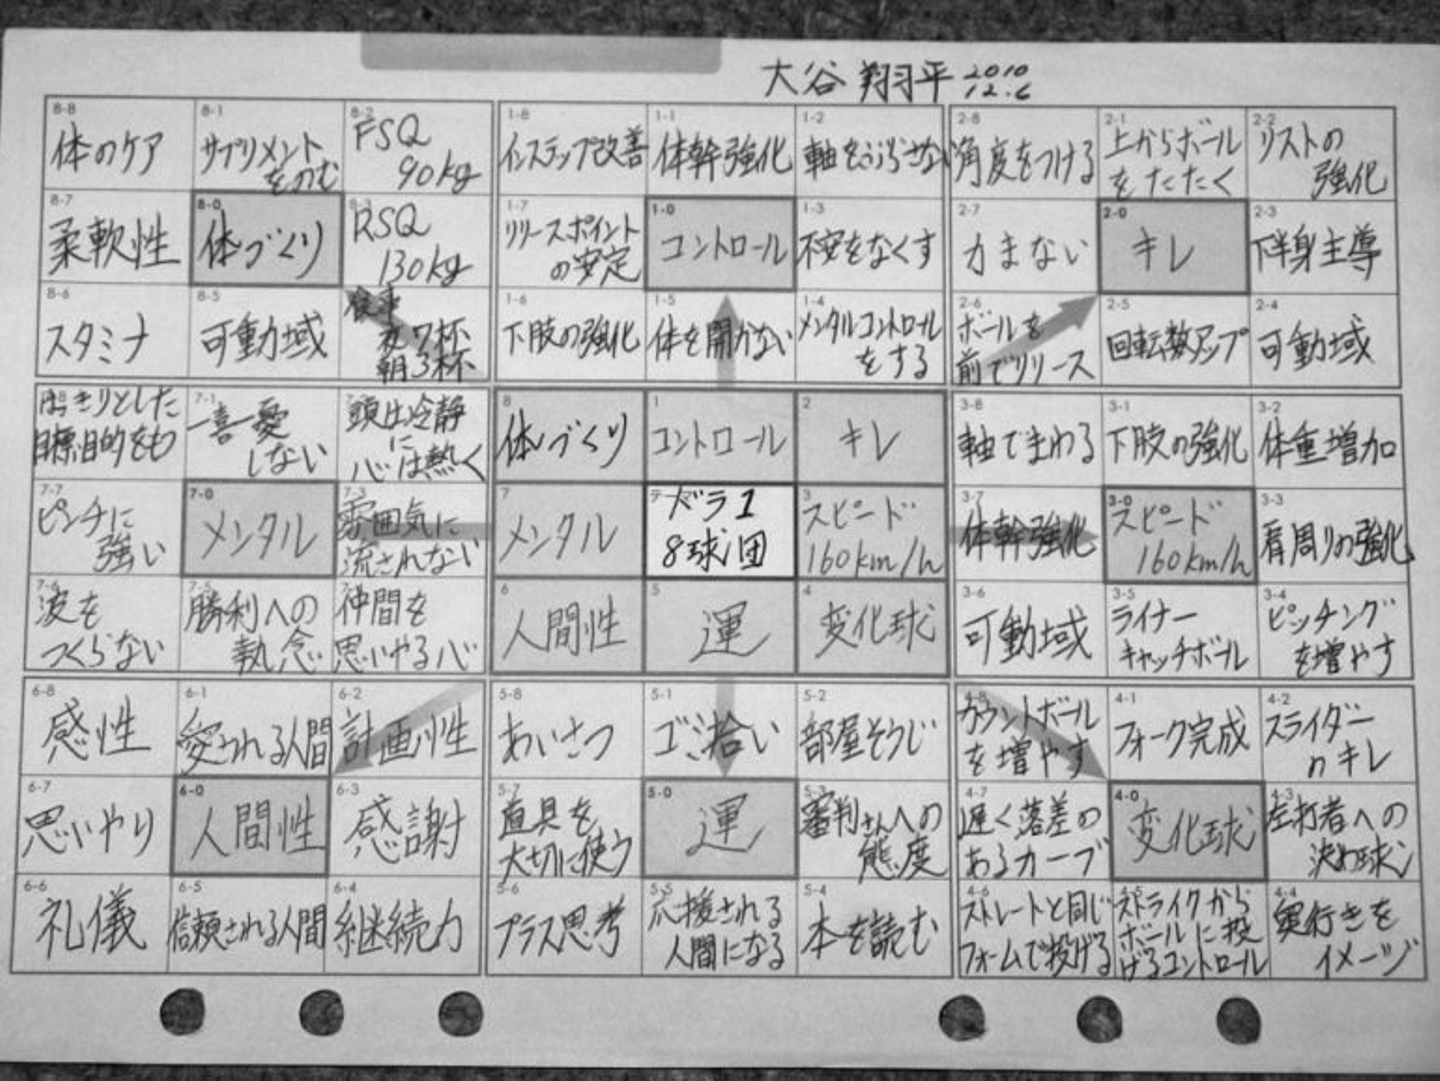 大谷 翔平 2010
12.6
8-8 体のケア
8-1 サプリメント
をのむ
8-2 FSQ
90kg
1-8 インステップ改善
1-1 体幹強化
1-2 軸をぶらさない
2-8 角度をつける
2-1 上からボール
をたたく
2-2 リストの
強化
8-7 柔軟性
8-0 体づくり
8-3 RSQ
130kg
1-7 リリースポイント
の安定
1-0 コントロール
1-3 不安をなくす
2-7 力まない
2-0 キレ
2-3 下半身主導
8-6 スタミナ
8-5 可動域
食事
夜7杯
朝3杯
1-6 下肢の強化
1-5 体を開かない
1-4 メンタルコントロール
をする
2-6 ボールを
前でリリース
2-5 回転数アップ
2-4 可動域
はっきりとした
目標、目的をもつ
7-1 一喜一憂
しない
頭は冷静
に
心は熱く
8 体づくり
1 コントロール
2 キレ
3-8 軸でまわる
3-1 下肢の強化
3-2 体重増加
7-7 ピンチに
強い
7-0 メンタル
7-3 雰囲気に
流されない
7 メンタル
ドラ1
8球団
3 スピード
160km/h
3-7 体幹強化
3-0 スピード
160km/h
3-3 肩周りの強化
7-6 波を
つくらない
7-5 勝利への
執念
仲間を
思いやる心
6 人間性
5 運
4 変化球
3-6 可動域
3-5 ライナー
キャッチボール
3-4 ピッチング
を増やす
6-8 感性
6-1 愛される人間
6-2 計画性
5-8 あいさつ
5-1 ゴミ拾い
5-2 部屋そうじ
4-8 カウントボール
を増やす
4-1 フォーク完成
4-2 スライダー
のキレ
6-7 思いやり
6-0 人間性
6-3 感謝
5-7 道具を
大切に使う
5-0 運
5-3 審判さんへの
態度
4-7 遅く落差の
あるカーブ
4-0 変化球
4-3 左打者への
決め球
6-6 礼儀
6-5 信頼される人間
6-4 継続力
5-6 プラス思考
5-5 応援される
人間になる
5-4 本を読む
4-6 ストレートと同じ
フォームで投げる
4-5 ストライクから
ボールに投
げるコントロール
4-4 奥行きを
イメージ